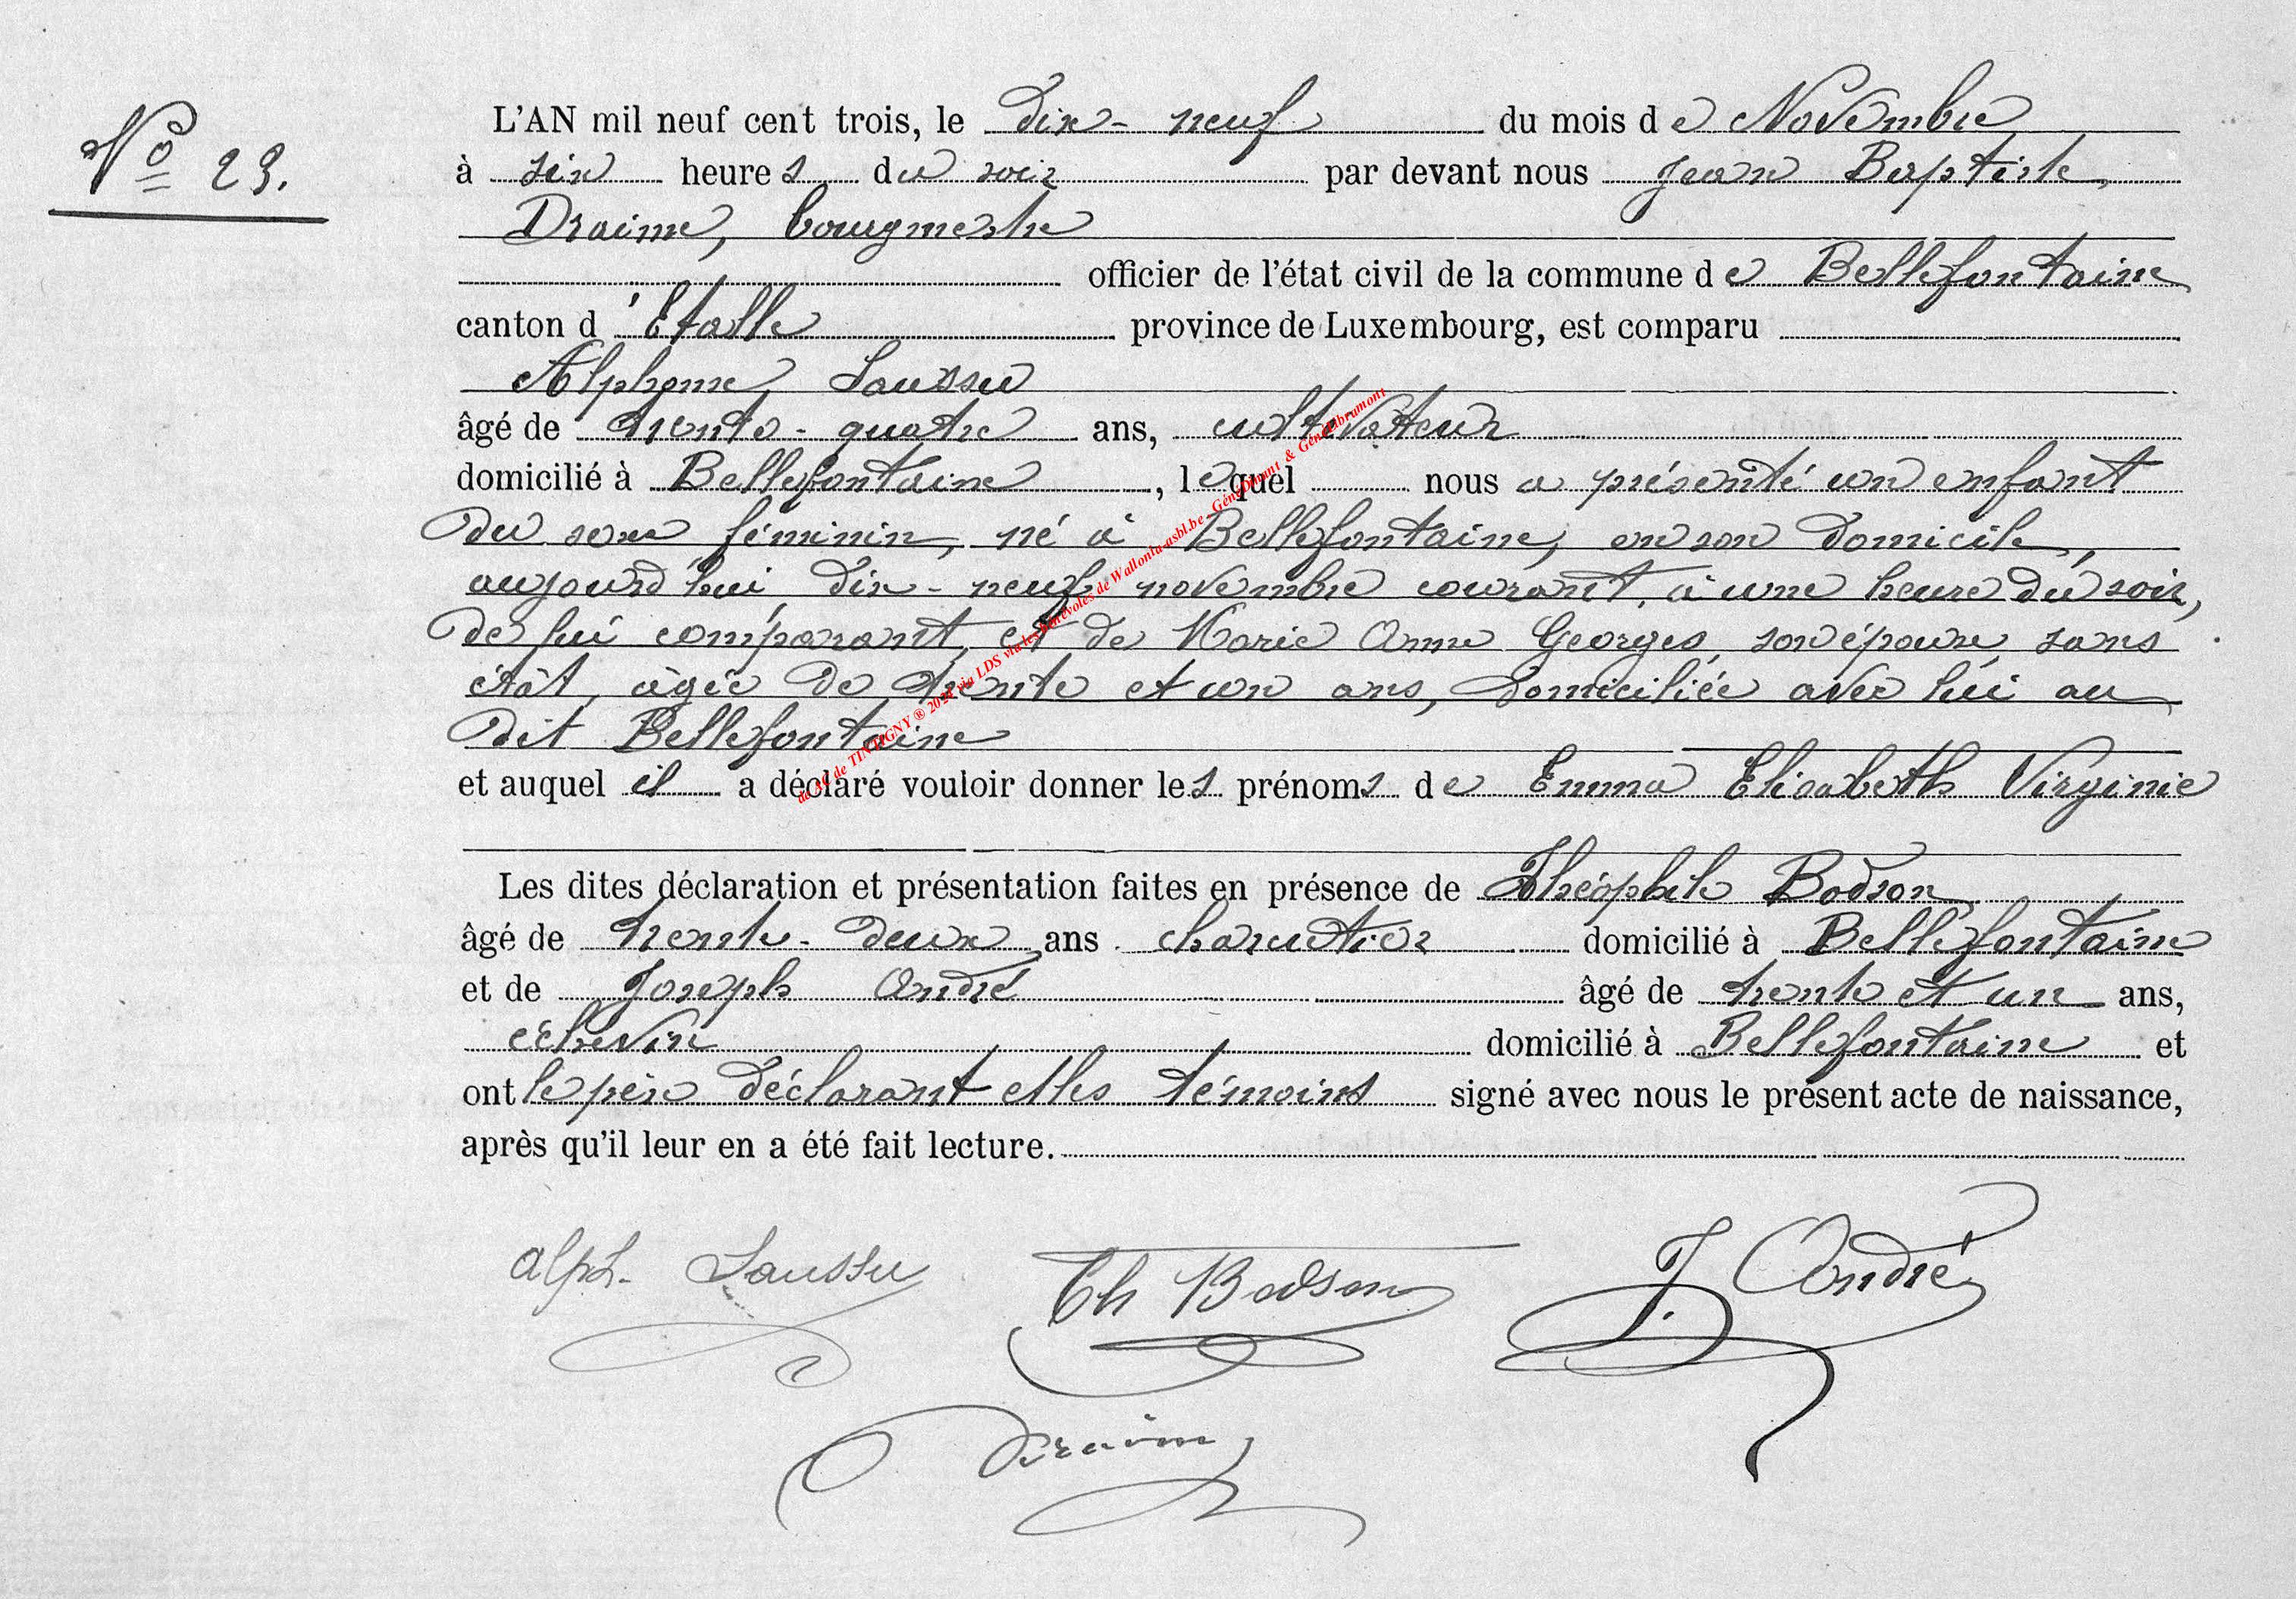 Nº 29.
L'AN mil neuf cent trois, le dix-neuf du mois de Novembre
à six heures du soir par devant nous Jean Baptiste
Draime, bourgmestre
officier de l'état civil de la commune de Bellefontaine
canton d'Etalle province de Luxembourg, est comparu
Alphonse Saussu
âgé de trente-quatre ans, cultivateur
domicilié à Bellefontaine, lequel nous a présenté un enfant
du sexe féminin, né à Bellefontaine, en son domicile,
aujourd'hui dix-neuf novembre courant, à une heure du soir,
de lui comparant, et de Marie Anne Georges, son épouse, sans
état, âgée de trente et un ans, domiciliée avec lui au
dit Bellefontaine
et auquel il a déclaré vouloir donner les prénoms de Emma Elisabeth Virginie
Les dites déclaration et présentation faites en présence de Théophile Bodson
âgé de trente-deux ans charcutier domicilié à Bellefontaine
et de Joseph André âgé de trente et un ans,
échevin domicilié à Bellefontaine et
ont le père déclarant et les témoins signé avec nous le présent acte de naissance,
après qu'il leur en a été fait lecture.
alph. Saussu Th Bodson J. André
Draime
de AC de TINTIGNY ® 2024 via LDS via les bénévoles de Wallonia-asbl.be - GénéDinant & GénéLibramont